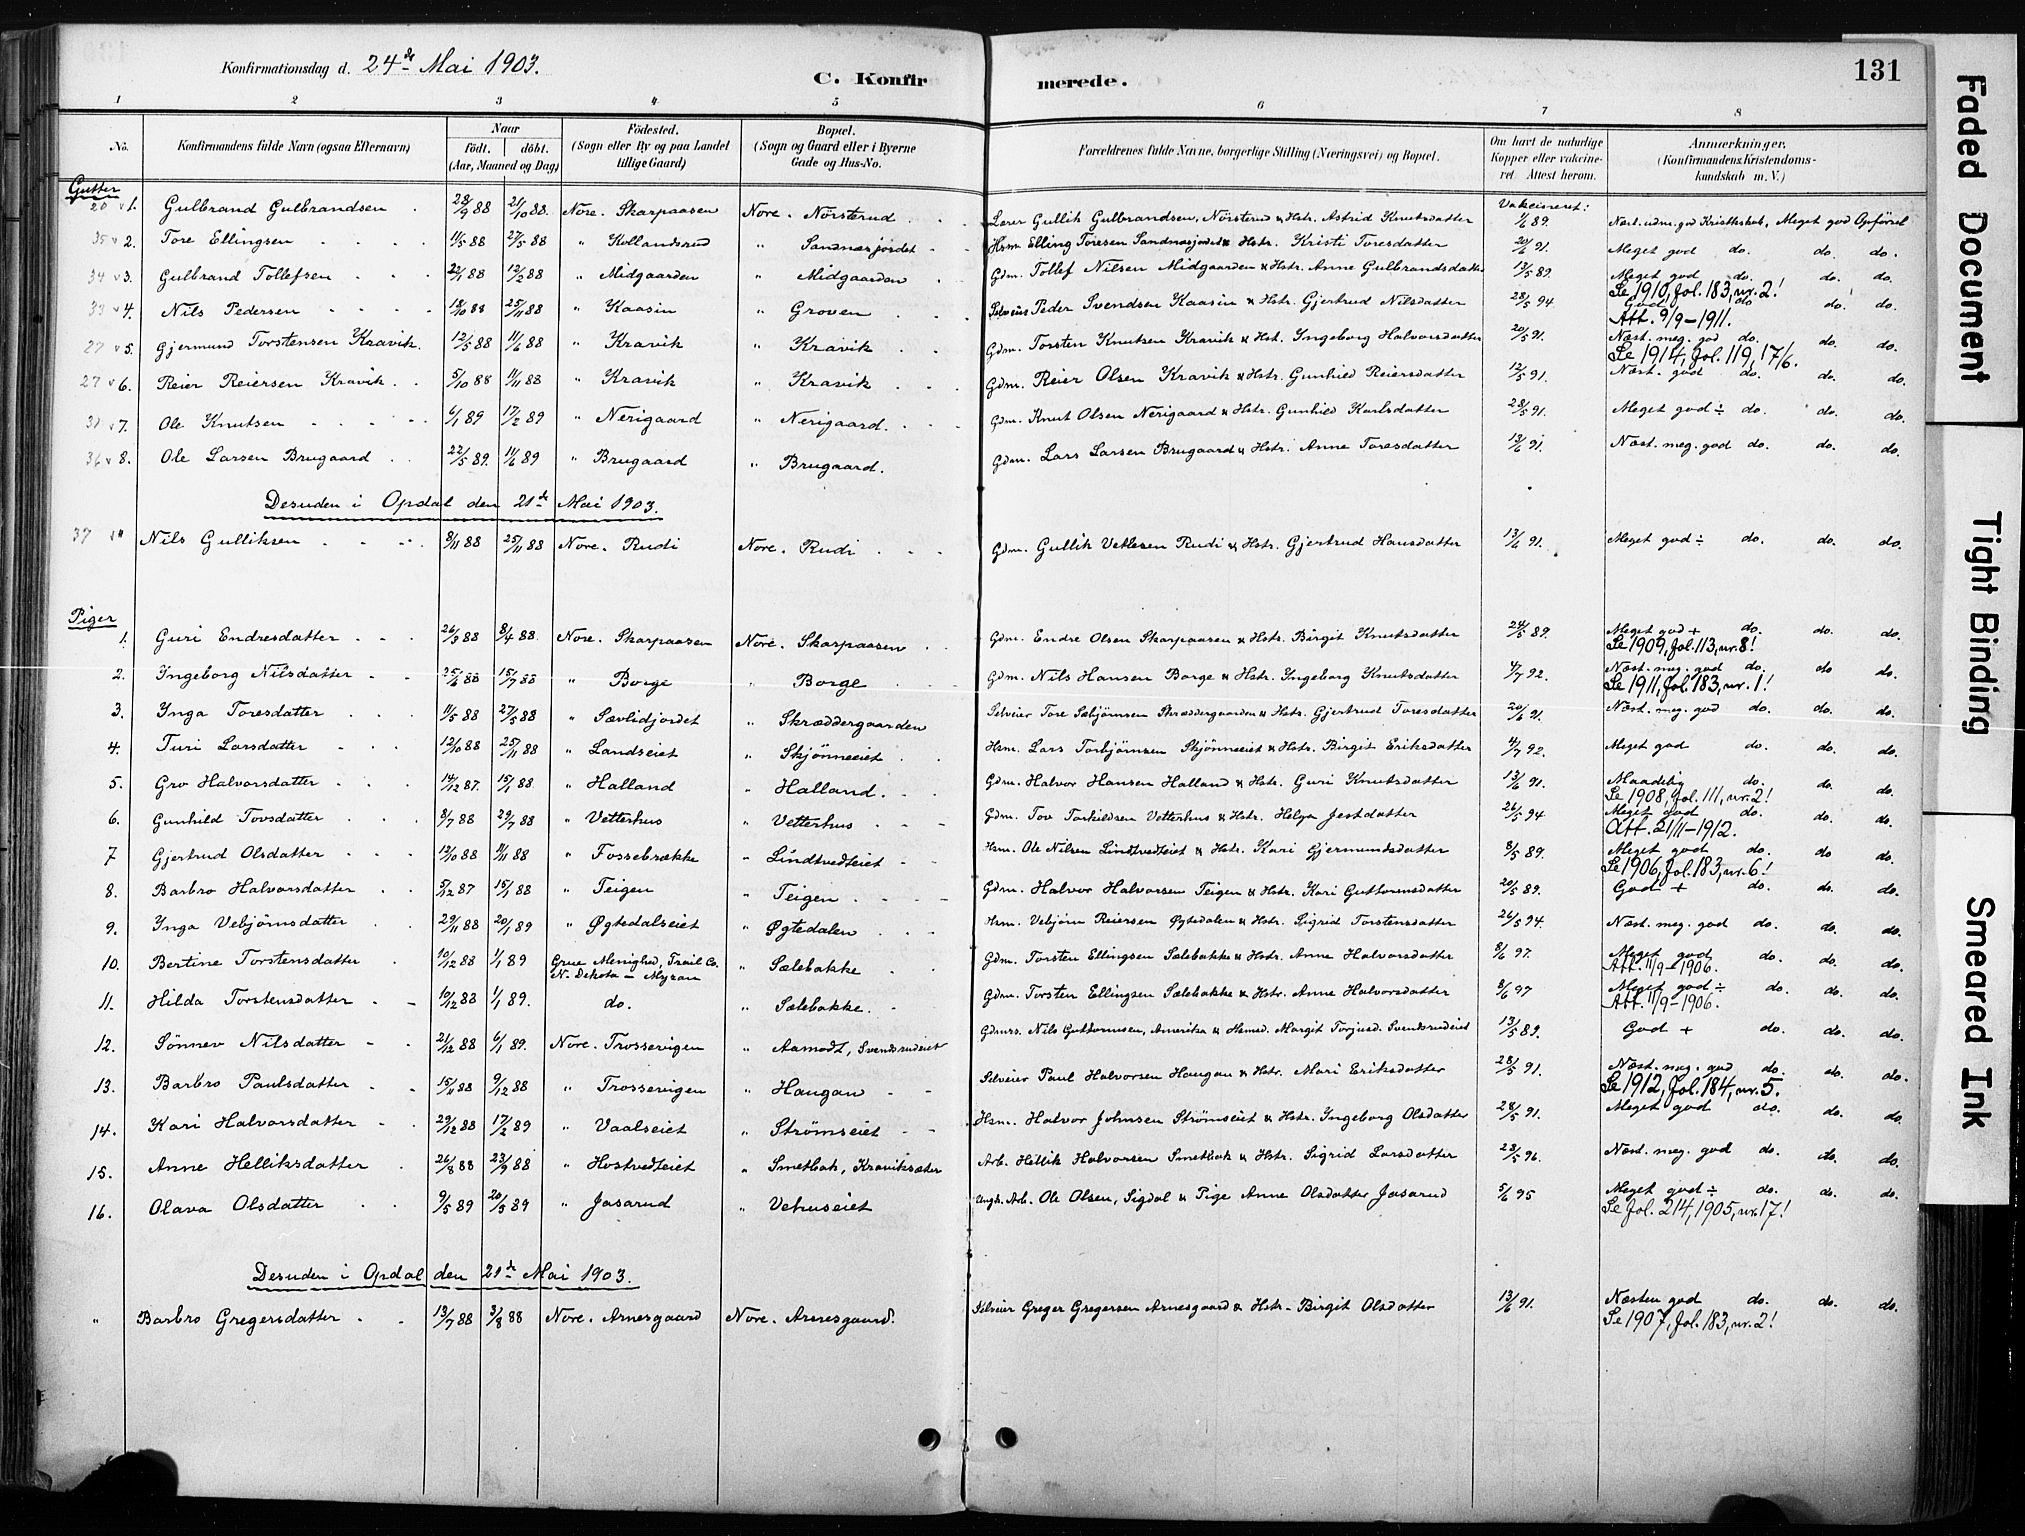 Konfirmationsdag d. 24de Mai 1903.
C. Konfirmerede.
131
1 2 3 4 5 6 7 8
No. Konfirmandens fulde Navn (ogsaa Efternavn) Naar Födt. döbt. (Aar, Maaned og Dag) Födested. (Sogn eller By og paa Landet tillige Gaard) Bopæl. (Sogn og Gaard eller i Byerne Gade og Hus-No. Forældrenes fulde Navne, borgerlige Stilling (Næringsvei) og Bopæl. Om havt de naturlige Kopper eller vakcineret. Attest herom. Anmærkninger. (Konfirmandens Kristendomskundskab m. V.)
Gutter
Vakcineret:
20 v 1. Gulbrand Gulbrandsen 28/9 88 21/10 88. Nore. Skarpaasen Nore. Nørsterud Lærer Gullik Gulbrandsen, Nørsterud & Hstr. Astrid Knutsdatter 1/6 89. Næst. udm. god Kristkskab, Meget god Opførsel
35 v 2. Tore Ellingsen 11/5 88 27/5 88 " Kollandsrud " Sandnæsjordet Hsm. Elling Toresen Sandnæsjordet & Hstr. Kristi Toresdatter 20/6 91. Meget god do. do. do.
34 v 3. Gulbrand Tollefsen 22/1 88 12/2 88 " Midgaarden " Midgaarden Gdm. Tollef Nilsen Midgaarden & Hstr. Anne Gulbrandsdatter 13/5 89. Meget god do. do. do.
Se 1910, fol. 183, nr. 2!
33 v 4. Nils Pedersen 18/10 88 25/11 88 " Kaasin " Groven Selveier Peder Svendsen Kaasin & Hstr. Gjertrud Nilsdatter 28/5 94 God do. do. do.
Att. 9/9-1911.
27 v 5. Gjermund Torstensen Kravik. 12/5 88 11/6 88 " Kravik " Kravik Gdm. Torsten Knutsen Kravik & Hst. Ingeborg Halvorsdatter 20/5 91. Næst. meg. god do. do. do.
Se 1914, fol. 119, 17/6.
27 v 6. Reier Reiersen Kravik 5/10 88 11/11 88 " Kravik " Kravik Gdm. Reier Olsen Kravik & Hstr. Gunhild Reiersdatter 12/5 91. Næst. god do. do. do.
v 7. Ole Knutsen 6/1 89 17/2 89 " Nerigaard " Nerigaard. Gdm. Knut Olsen Nerigaard & Hstr. Gunhild Karlsdatter 28/5 91. Meget god ÷ do. do. do.
36 v 8. Ole Larsen Brugaard 22/5 89. 11/6 89 " Brugaard " Brugaard. Gdm. Lars Larsen Brugaard & Hstr. Anne Toresdatter 13/6 91. Næst. meg. god do. do. do.
Desuden i Opdal den 21de Mai 1903.
37 v " Nils Gulliksen 8/11 88 25/11 88 Nore. Rudi Nore. Rudi Gdm. Gullik Vetlesen Rudi & Hstr. Gjertrud Hansdatter 13/6 91. Meget god ÷ do. do. do.
Piger
1. Guri Endresdatter 26/3 88 8/4 88. Nore. Skarpaasen Nore. Skarpaasen Gdm. Endre Olsen Skarpaasen & Hstr. Birgit Knutsdatter 24/5 89. Meget god + do. do. do.
Se 1909, fol. 113, nr. 8!
2. Ingeborg Nilsdatter 25/6 88 15/7 88 " Borge " Borge Gdm. Nils Hansen Borge & Hstr. Ingeborg Knutsdatter 4/7 92. Næst. meg. god do. do do.
Se 1911, fol. 183, nr. 1!
3. Inga Toresdatter 11/5 88 27/5 88 " Sævlidjordet " Skræddergaarden Selveier Tore Sæbjørnsen Skræddergaarden & Hstr. Gjertrud Toresdatter 20/6 91. Næst. meg. god do. do. do.
4. Turi Larsdatter 12/10 88 25/11 88 " Landseiet " Skjønneeiet Hsm. Lars Torbjørnsen Skjønneeiet & Hstr. Birgit Eriksdatter 4/7 92. Meget god do. do. do.
5. Gro Halvorsdatter 14/12 87. 15/1 88. " Halland " Halland. Gdm. Halvor Hansen Halland & Hstr. Guri Knutsdatter 13/6 91. Maadelig do. do. do.
Se 1908, fol. 111, nr. 2!
6. Gunhild Tovsdatter 8/7 88 29/7 88 " Vetterhus " Vetterhus Gdm. Tov Torkildsen Vetterhus & Hstr. Helga Jestdatter 26/5 94 Meget god do. do. do.
Att. 21/11-1912.
7 Gjertrud Olsdatter 12/10 88 11/11 88 " Fossebrække " Lindtvedteiet Hsm. Ole Nilsen Lindtvedteiet & Hstr. Kari Gjermundsdatter 8/5 89. Meget god do. do do.
Se 1906, fol. 183, nr. 6!
8. Barbro Halvorsdatter 5/12 87 15/1 88 " Teigen " Teigen Gdm. Halvor Halvorsen Teigen & Hstr. Kari Guttormsdatter 20/5 89. God + do. do. do.
9. Inga Vebjørnsdatter 29/11 88 20/1 89 " Øgtedalseiet " Øgtedalen Hsm. Vebjørn Reiersen Øgtedalen & Hstr. Sigrid Torstensdatter 26/5 94. Næst. meg. god do. do. do.
10. Bertine Torstensdatter 10/12 88 1/1 89 Grue Menighed, Trail Co. N. Dekota - Myran " Sælebakke Gdm. Torsten Ellingsen Sælebakke & Hstr. Anne Halvorsdatter 8/6 97. Meget god do. do. do.
Att. 11/9-1906.
11. Hilda Torstensdatter 10/12 88 1/1 89. do. " Sælebakke. Gdm. Torsten Ellingsen Sælebakke & Hstr. Anne Halvorsdatter 8/6 97 Meget god ÷ do. do. do.
Att. 11/9-1906.
12. Sønnev Nilsdatter 21/12 88 6/1 89. Nore. Trossevigen " Aamodt, Svendsrudeiet Gdmrs. Nils Guttormsen, Amerika & Hsmd. Margit Torjusd. Svendsrudeiet 13/5 89. God + do. do. do.
13. Barbro Paulsdatter 15/11 88 9/12 88 " Trossevigen " Haugan Selveier Paul Halvorsen Haugan & Hstr. Mari Eriksdatter 28/5 91. Næst. meg. god do. do. do.
Se 1912, fol. 184, nr. 5.
14. Kari Halvorsdatter 29/12 88 17/2 89 " Vaalseiet " Strømseiet Hsm. Halvor Johnsen Strømseiet & Hstr. Ingeborg Olsdatter 28/5 91. Meget god do. do. do.
15. Anne Helliksdatter 26/8 88 23/9 88 " Hostvedteiet " Smetbak, Kraviksæter Arb. Hellik Halvorsen Smetbak & Hstr. Sigrid Larsdatter 23/5 96. Næst. meg. god do. do. do.
16. Olava Olsdatter 9/5 89 20/5 89 " Jasarud " Vehuseiet Ungk. Arb. Ole Olsen, Sigdal & Pige Anne Olsdatter Jasarud 5/6 95 Meget god ÷ do. do. do.
Se fol. 214, 1905, nr. 17!
Desuden i Opdal den 21de Mai 1903.
" Barbro Gregersdatter 13/7 88 3/8 88 Nore. Arnesgaard Nore. Arnesgaard. Selveier Greger Gregersen Arnesgaard & Hstr. Birgit Olsdatter 13/6 91. Næsten god do. do. do.
Se 1907, fol. 183, nr. 2!
Faded Document
Tight Binding
Smeared Ink